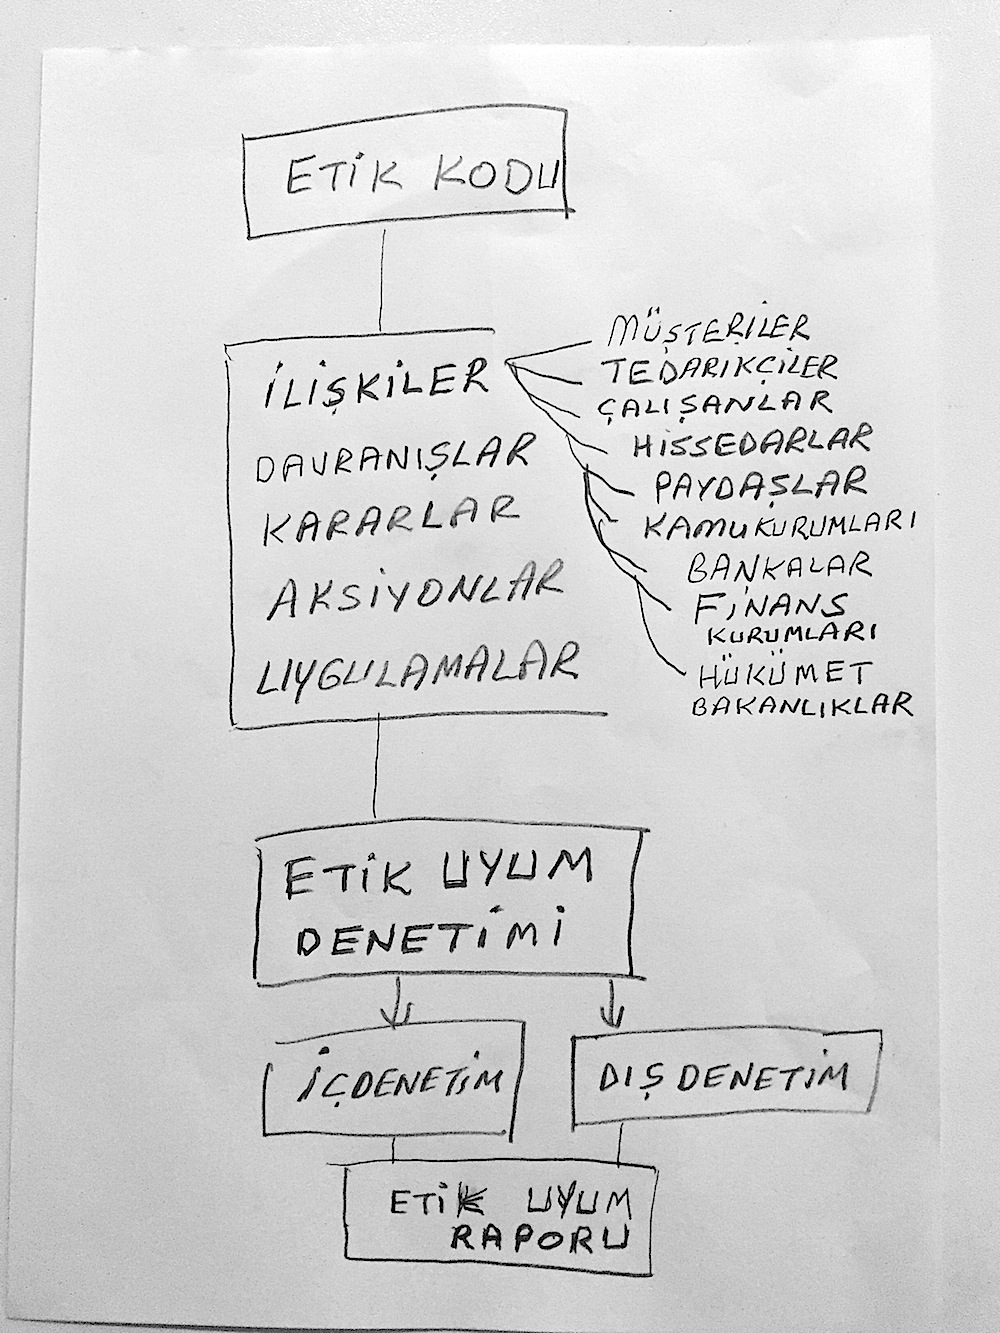 ETİK KODU
İLİŞKİLER
DAVRANIŞLAR
KARARLAR
AKSİYONLAR
UYGULAMALAR
MÜŞTERİLER
TEDARIKÇİLER
ÇALIŞANLAR
HİSSEDARLAR
PAYDAŞLAR
KAMU KURUMLARI
BANKALAR
FİNANS
KURUMLARI
HÜKÜMET
BAKANLIKLAR
ETİK UYUM
DENETİMİ
İÇ DENETİM
DIŞ DENETİM
ETİK UYUM
RAPORU